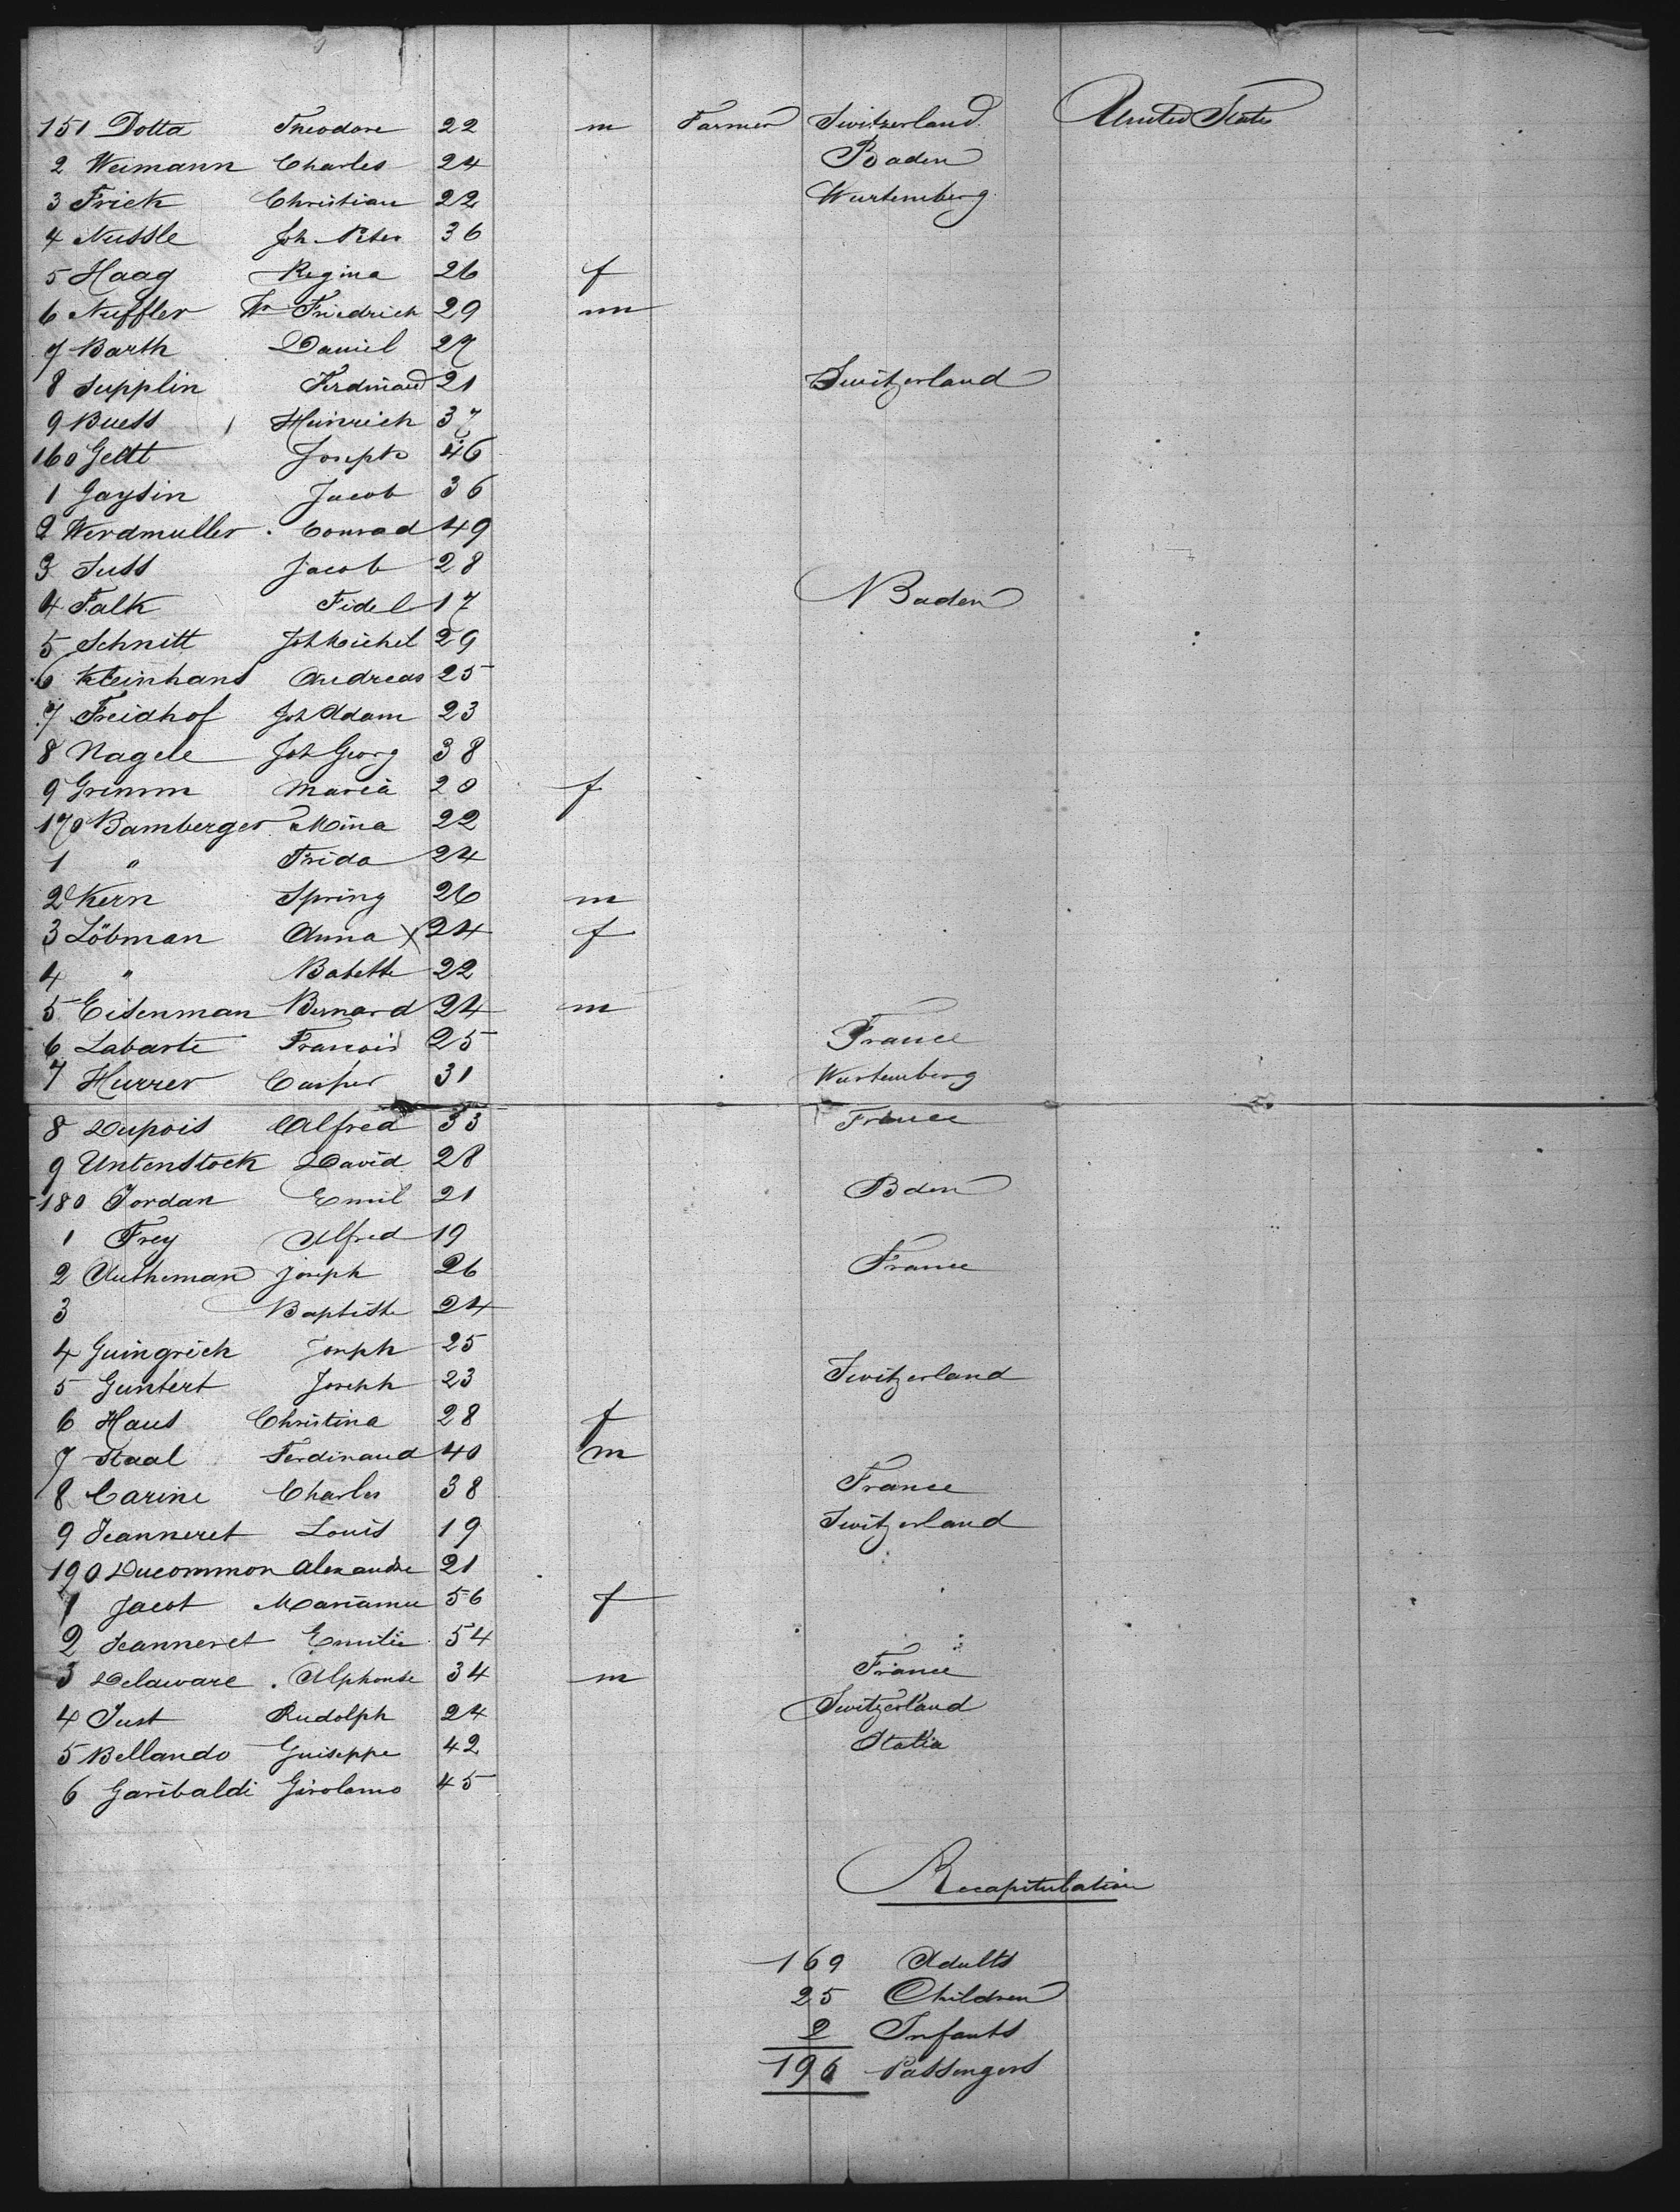 151 Dotta Theodore 22 m Farmer Switzerland United States
2 Weimann Charles 24 Baden
3 Frick Christian 22 Wurtemberg
4 Nussle Joh. Peter 36
5 Haag Regina 26 f
6 Nuffler Friedrich 29 m
7 Barth Daniel 27
8 Supplin Ferdinand 21 Switzerland
9 Buess Heinrich 37
160 Joseph 46
1 Gaysin Jacob 36
2 Werdmuller Conrad 49
3 Suss Jacob 28
4 Falk Fidel 17 Baden
5 Schnitt Joh Michel 29
6 Kleinhans Andreas 25
7 Freidhof Joh Adam 23
8 Nagele Joh Georg 38
9 Grimm Maria 20 f
170 Bamberger Mina 22
1 " Frida 24
2 Kern Spring 26 m
3 Löbman Anna X 24 f
4 " Babette 22
5 Eisenman Bernard 24 m
6 Labarte Francois 25 France
7 Hurrer Casper 31 Wurtemberg
8 Dupois Alfred 33 France
9 Untenstock David 28
180 Jordan Emil 21 Bden
1 Frey Alfred 19
2 Autheman Joseph 26 France
3 Baptiste 24
4 Guingrich Joseph 25
5 Guntert Joseph 23 Switzerland
6 Haus Christina 28 f
7 Staal Ferdinand 40 m
8 Carine Charles 38 France
9 Jeanneret Louis 19 Switzerland
190 Ducommon Alexandre 21
1 Jacot Marianne 56 f
2 Jeanneret Emilie 54
3 Delaware Alphonse 34 m France
4 Just Rudolph 24 Switzerland
5 Bellando Guiseppe 42 Italia
6 Garibaldi Girolamo 45
Recapitulation
169 Adults
25 Children
2 Infants
196 Passengers